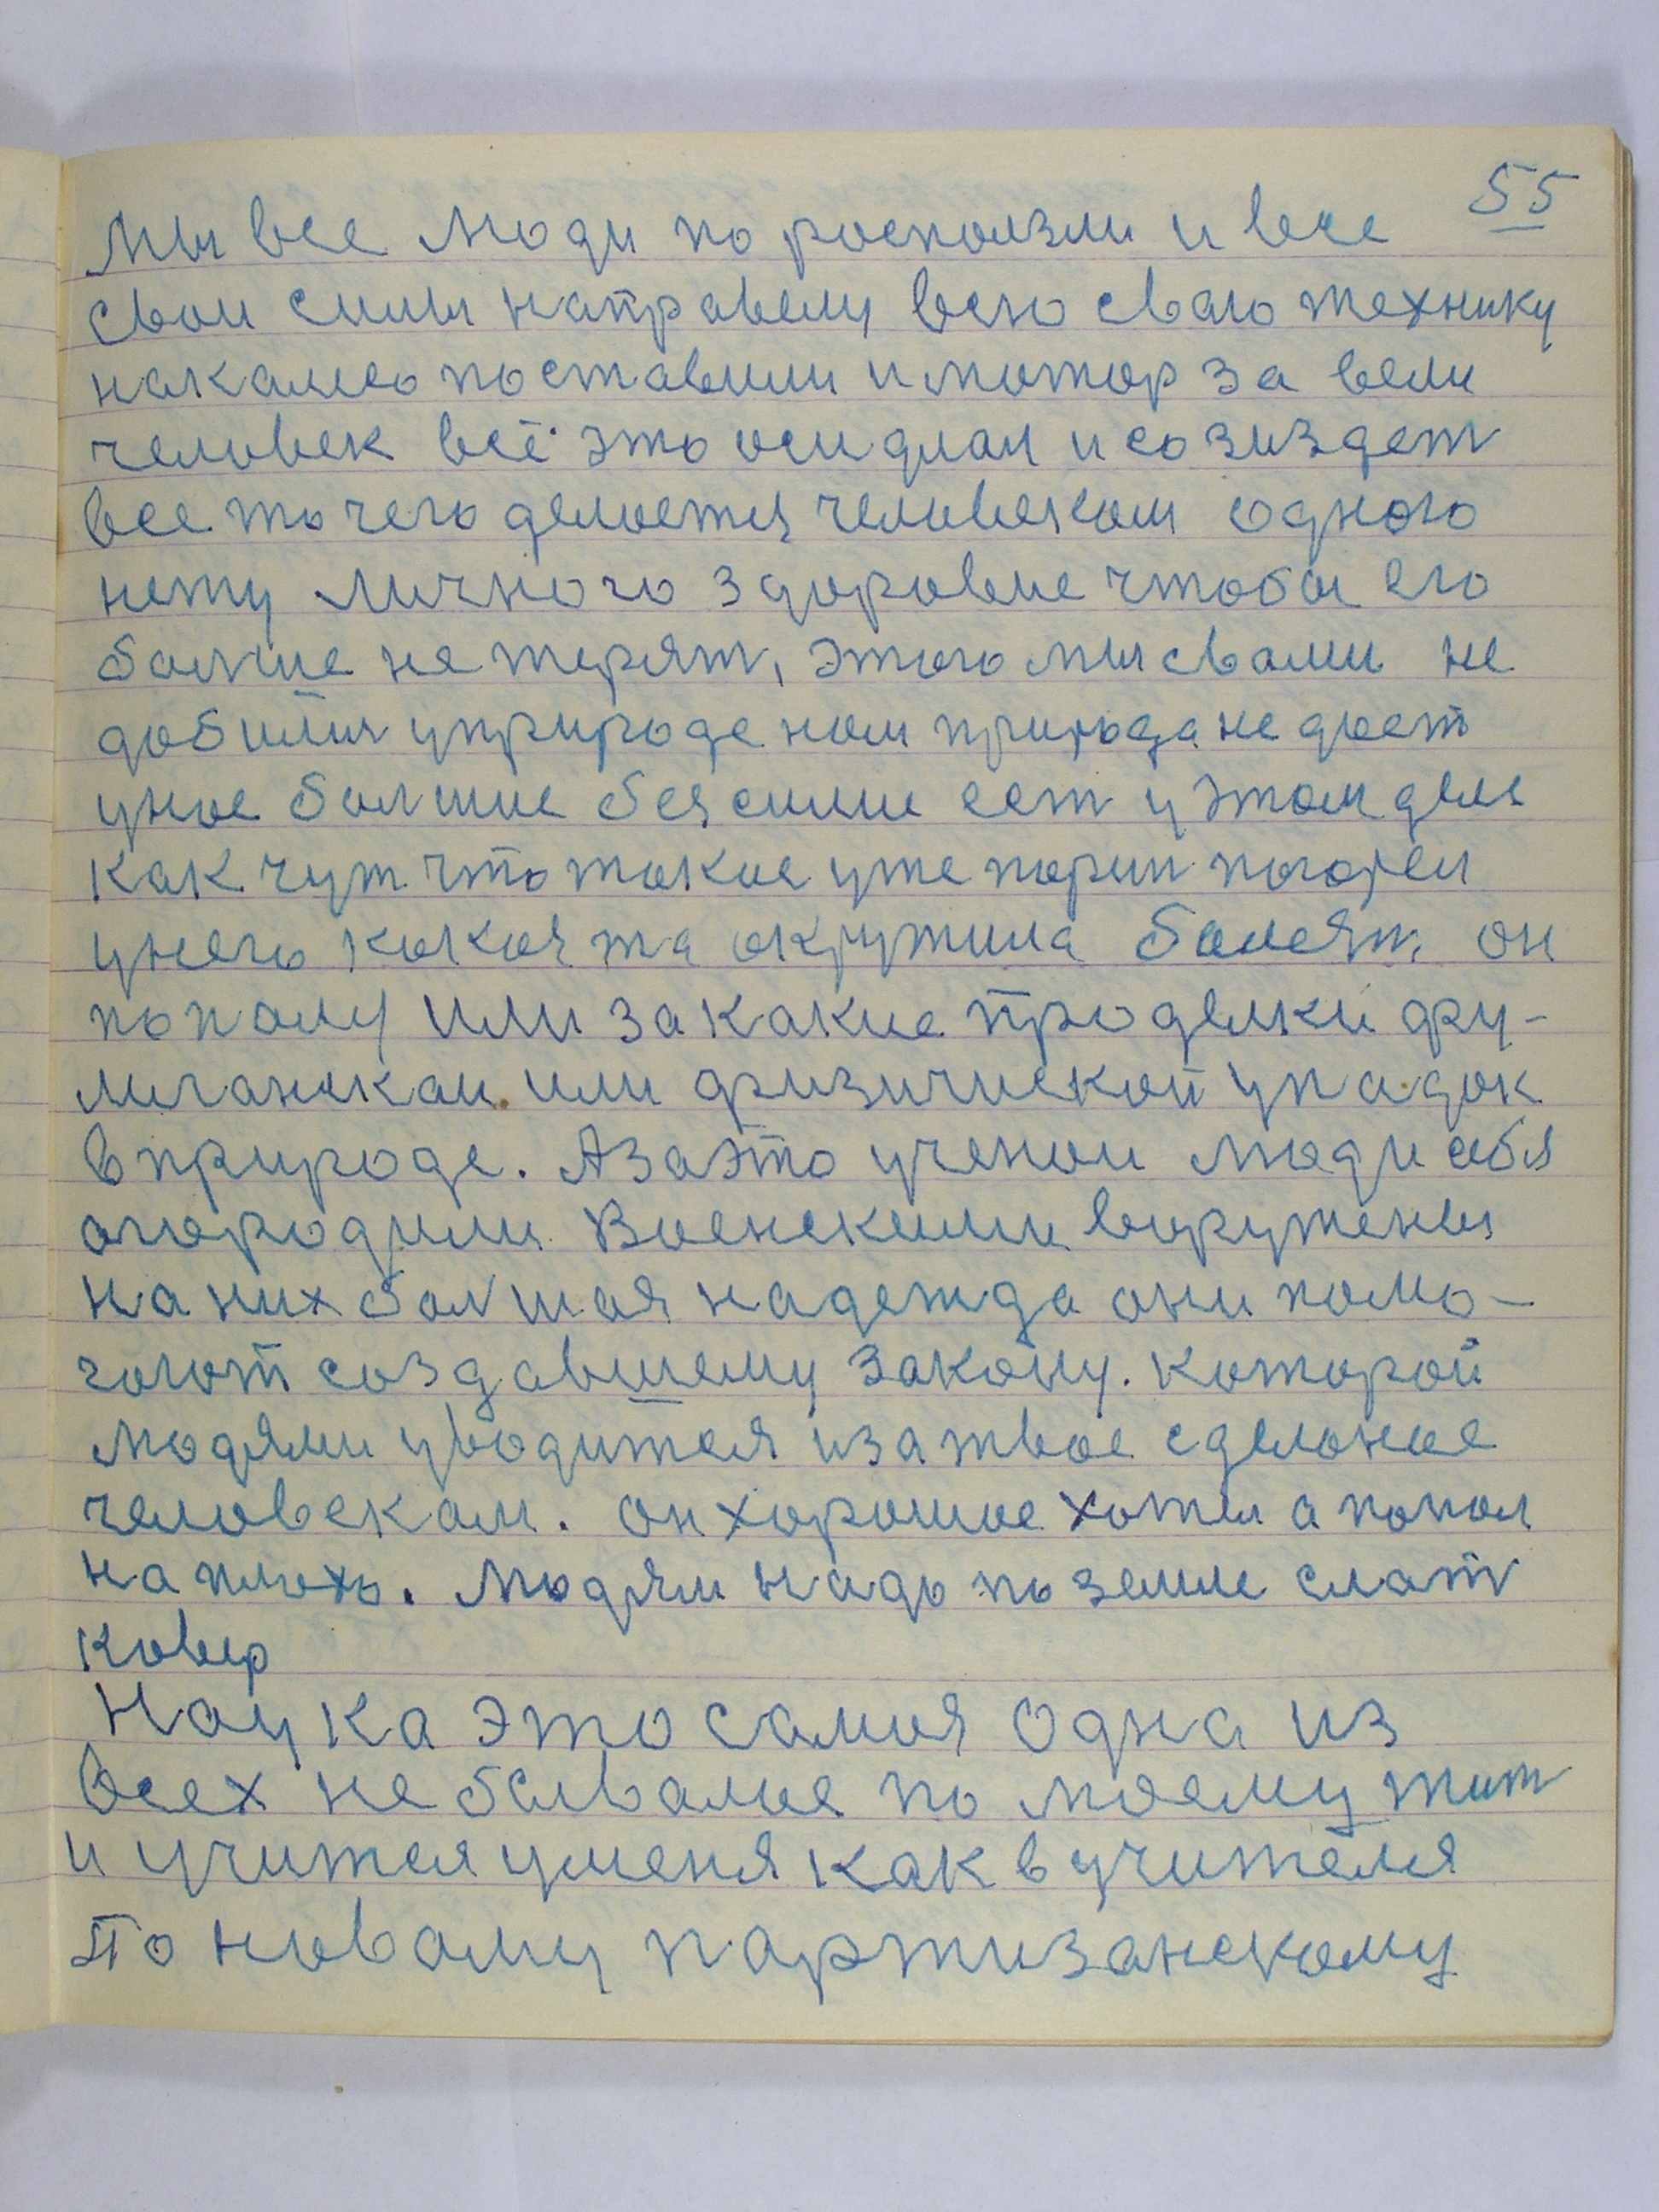 55
Мы все люди по росползли и все
свои силы направели всю сваю технику
накалесо поставили и мотор за вели
человек всё это оседлал и созиздет
все то чего делоется человеком одного
нету личного здоровие чтобы его
болше не терят, этого мы свами не
добилися уприроде ном природа не доет
унос болшие безсилие ест у этом деле
как чут что токое уже порин погорел
унего кокоя та окружила болезн, он
попалу или за какие проделки фу-
лиганскаи или физический упадок
в природе. А заэто ученои люди себя
огородили Военскими воружения
на них болшая надежда они помо-
гоют создавшему закону. которой
людями уводится иза твое сделоное
человекам. он хорошое хотел а попол
на плохо. Людям надо по земле слат
ковер
Наука это самоя одна из
всех не бывалые по моему жит
и учится уменя как в учителя
По новаму партизанскому